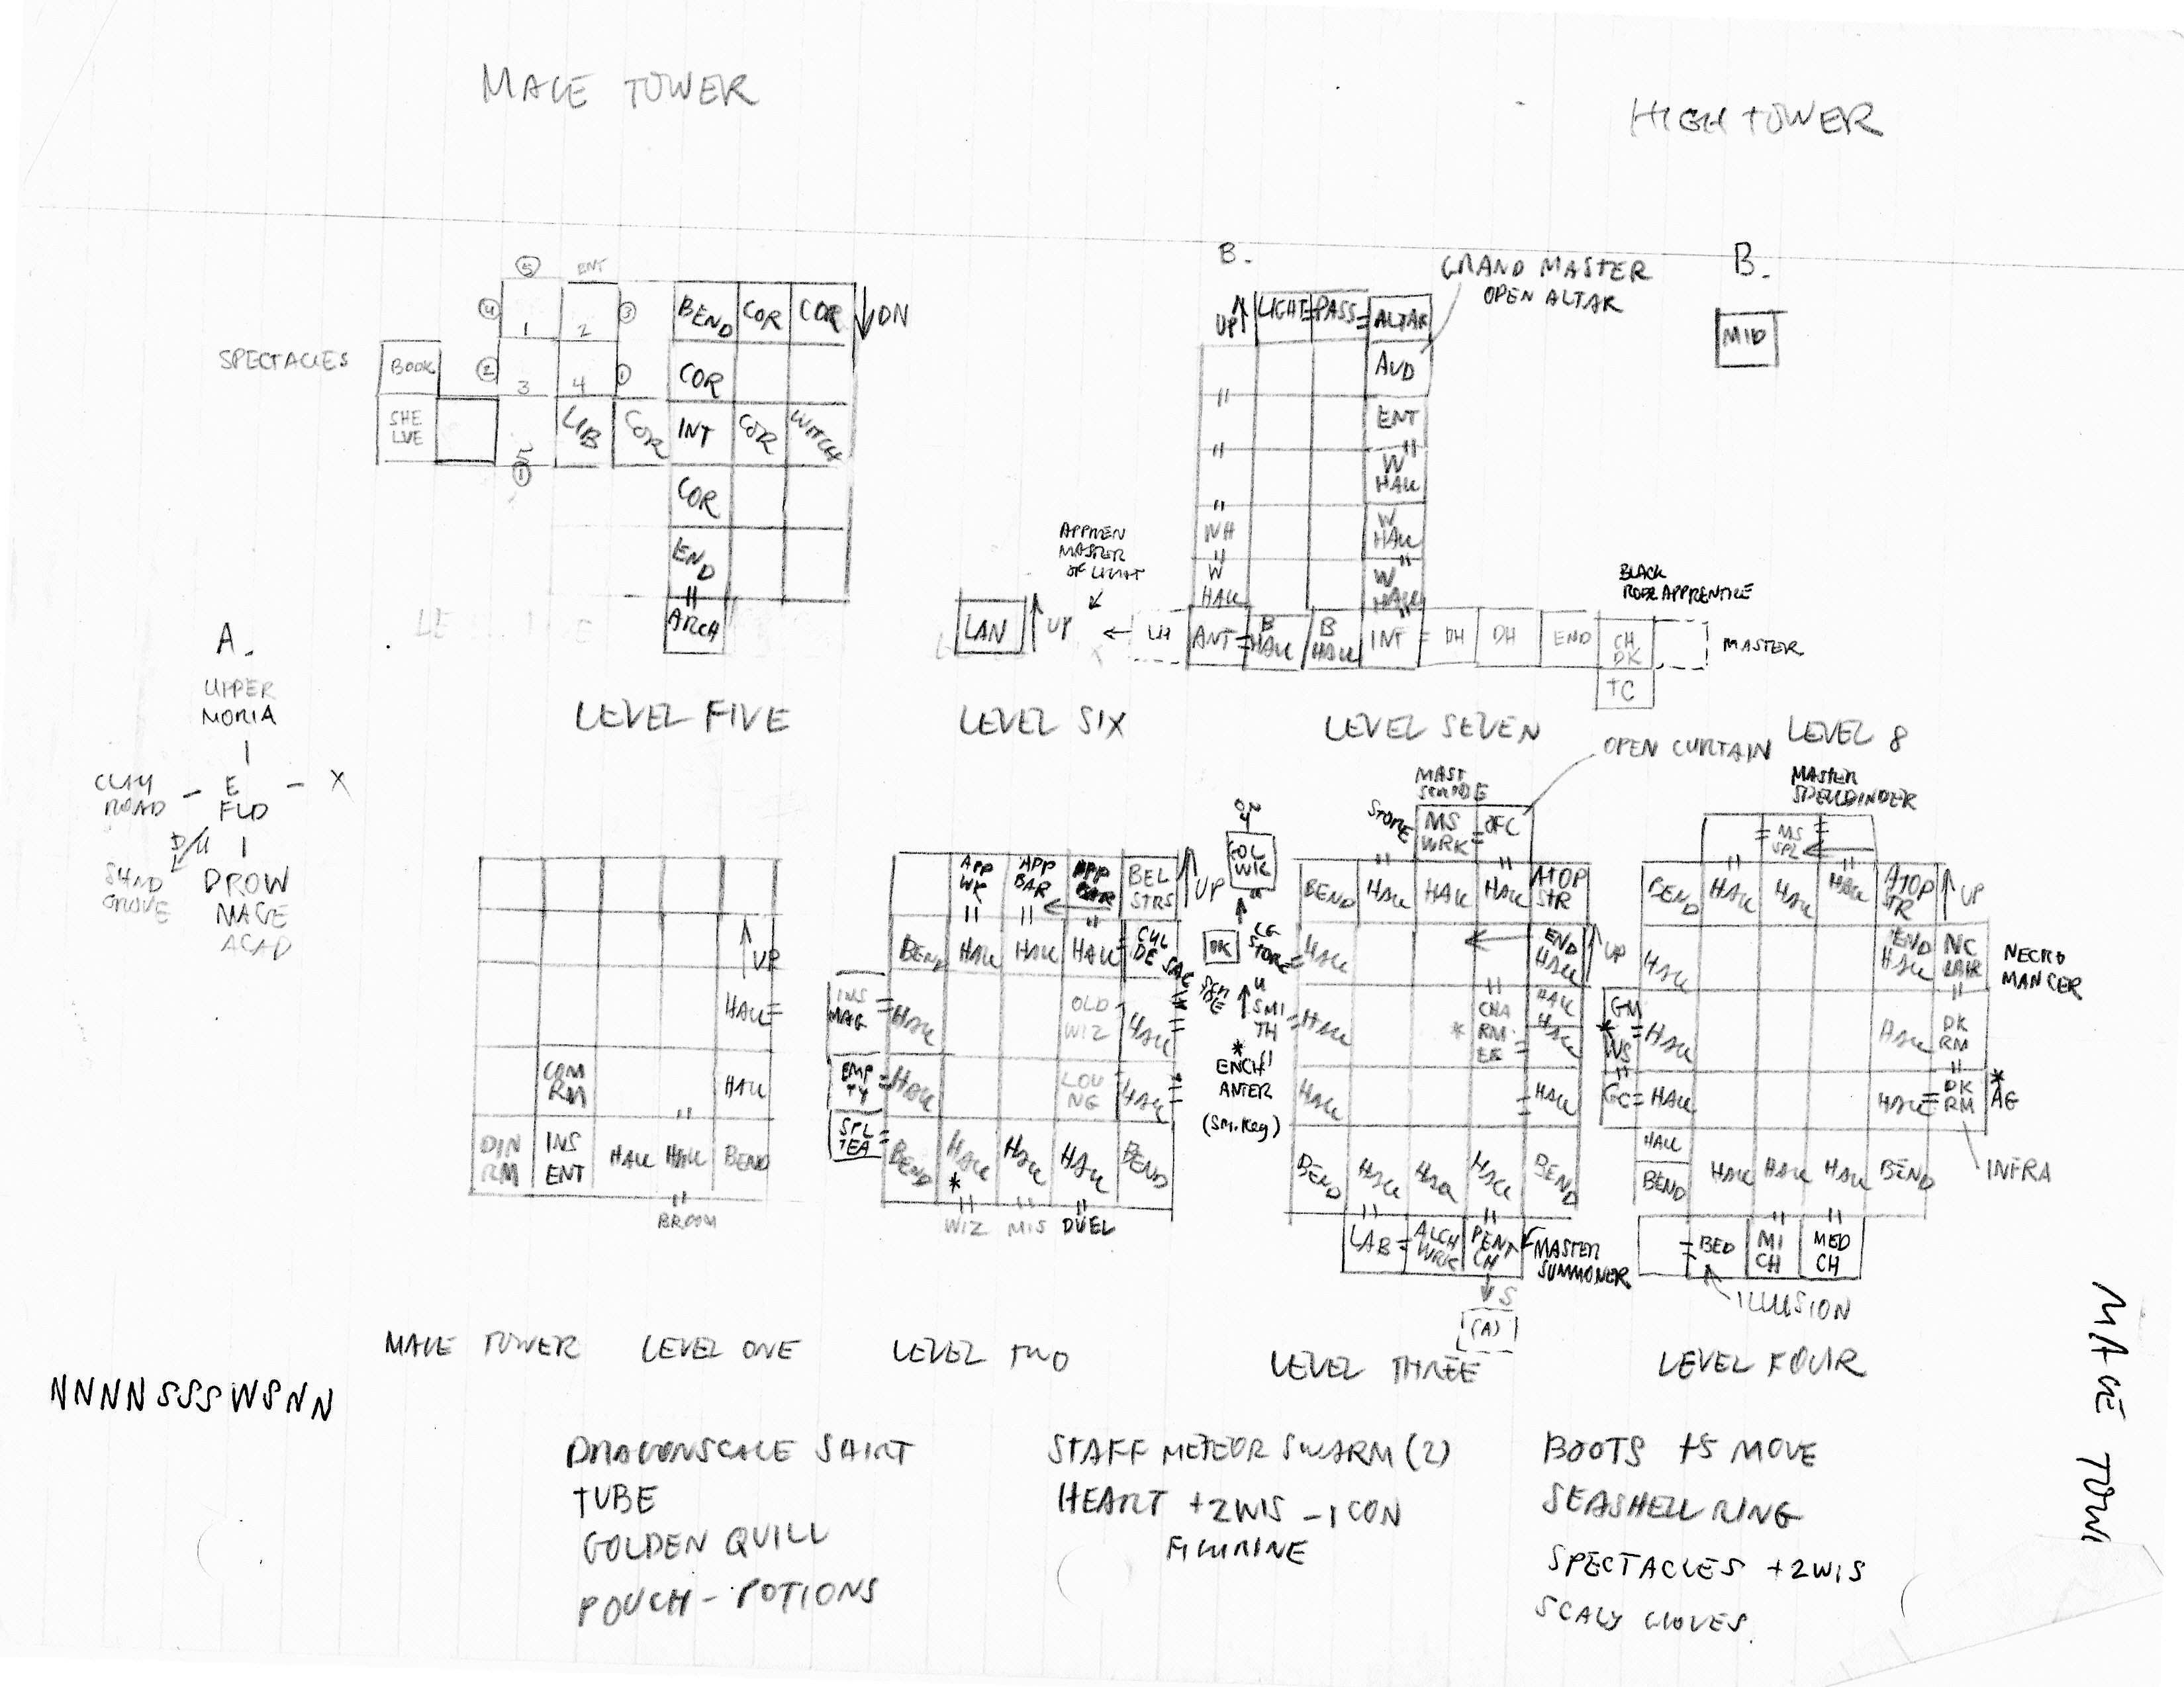 MAGE TOWER
HIGH TOWER
5
ENT
4
1
2
3
BEND
COR
COR
DN
SPECTACLES
BOOK
2
3
4
1
COR
SHE
LVE
5
1
LIB
COR
INT
COR
WITCH
COR
END
ARCH
LEVEL FIVE
B.
GRAND MASTER
OPEN ALTAR
UP
LIGHT
PASS
ALTAR
AUD
ENT
W
HALL
WH
W
HALL
W
HALL
W
HALL
APPREN
MASTER
OF LIGHT
LAN
UP
LH
ANT
B
HALL
B
HALL
INT
DH
DH
END
CH
DK
TC
BLACK
ROBE APPRENTICE
MASTER
LEVEL SIX
LEVEL SEVEN
B.
MID
LEVEL 8
A.
UPPER
MORIA
CLAY
ROAD
E
FLD
X
D
SHND
GROVE
DROW
MAGE
ACAD
UP
HALL
COM
RM
HALL
DIN
RM
INS
ENT
HALL
HALL
BEND
BROOM
MAGE TOWER LEVEL ONE
APP
WK
APP
BAR
APP
BEL
STRS
UP
BEND
HALL
HALL
HALL
CUL
DE SAC
INS
MAG
HALL
OLD
WIZ
HALL
EMP
TY
HALL
LOU
NG
HALL
SPL
TEA
BEND
HALL
*
HALL
HALL
BEND
WIZ
MIS
DUEL
LEVEL TWO
DN
GOL
WK
U
DK
LG
STORE
U
SMI
TH
*
ENCH
ANTER
(SM. Key)
OPEN CURTAIN
STORE
MS
WRK
OFC
BEND
HALL
HALL
HALL
ATOP
STR
HALL
END
HALL
UP
HALL
*
CHA
RM
EE
HALL
HALL
HALL
HALL
BEND
HALL
HALL
HALL
BEND
LAB
ALCH
WRK
PENT
CH
MASTER
SUMMONER
S
(A)
LEVEL THREE
MASTER
SPELLBINDER
MS
SPL
BEND
HALL
HALL
HALL
ATOP
STR
UP
HALL
END
HALL
NC
LAIR
NECRO
MANCER
GM
*
WS
HALL
HALL
DK
RM
GC
HALL
HALL
DK
RM
*
AG
HALL
BEND
HALL
HALL
HALL
BEND
INFRA
BED
MI
CH
MED
CH
ILLUSION
LEVEL FOUR
NNNNSSSWSNN
DRAGONSCALE SHIRT
TUBE
GOLDEN QUILL
POUCH - POTIONS
STAFF METEOR SWARM (2)
HEART +2WIS -1CON
FIGURINE
BOOTS +5 MOVE
SEASHELL RING
SPECTACLES +2WIS
SCALY GLOVES
MAGE TOWR